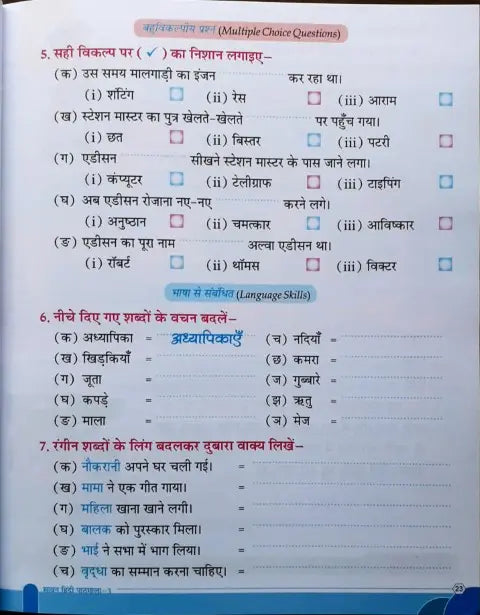 बहुविकल्पीय प्रश्न (Multiple Choice Questions)
5. सही विकल्प पर ( ✓ ) का निशान लगाइए–
(क) उस समय मालगाड़ी का इंजन .................... कर रहा था।
(i) शॉटिंग (ii) रेस (iii) आराम
(ख) स्टेशन मास्टर का पुत्र खेलते-खेलते .................... पर पहुँच गया।
(i) छत (ii) बिस्तर (iii) पटरी
(ग) एडीसन .................... सीखने स्टेशन मास्टर के पास जाने लगा।
(i) कंप्यूटर (ii) टेलीग्राफ (iii) टाइपिंग
(घ) अब एडीसन रोजाना नए-नए .................... करने लगे।
(i) अनुष्ठान (ii) चमत्कार (iii) आविष्कार
(ङ) एडीसन का पूरा नाम .................... अल्वा एडीसन था।
(i) रॉबर्ट (ii) थॉमस (iii) विक्टर
भाषा से संबंधित (Language Skills)
6. नीचे दिए गए शब्दों के वचन बदलें–
(क) अध्यापिका = अध्यापिकाएँ (च) नदियाँ = ....................
(ख) खिड़कियाँ = .................... (छ) कमरा = ....................
(ग) जूता = .................... (ज) गुब्बारे = ....................
(घ) कपड़े = .................... (झ) ऋतु = ....................
(ङ) माला = .................... (ञ) मेज = ....................
7. रंगीन शब्दों के लिंग बदलकर दुबारा वाक्य लिखें–
(क) नौकरानी अपने घर चली गई। = ....................
(ख) मामा ने एक गीत गाया। = ....................
(ग) महिला खाना खाने लगी। = ....................
(घ) बालक को पुरस्कार मिला। = ....................
(ङ) भाई ने सभा में भाग लिया। = ....................
(च) वृद्धा का सम्मान करना चाहिए। = ....................
हिंदी पाठमाला-3
23